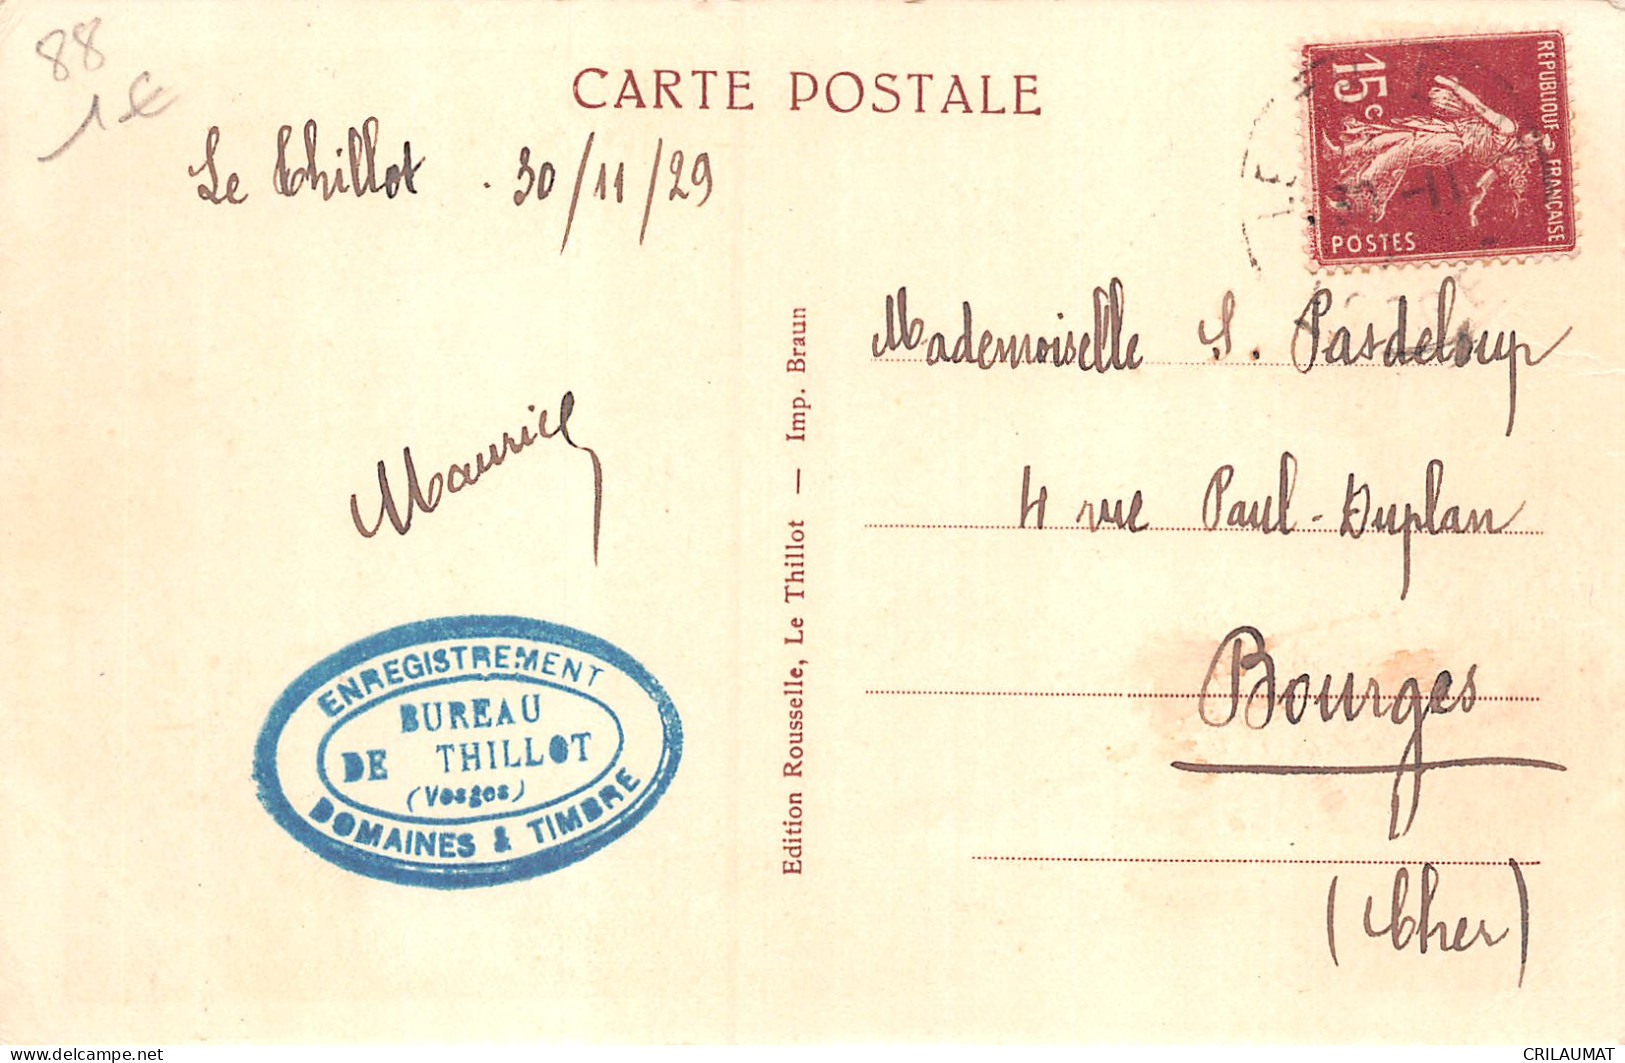 88
1€
CARTE POSTALE
Le Thillot . 30/11/29
REPUBLIQUE FRANÇAISE
15c
POSTES
LE
30 -11
Mademoiselle S. Pasdeloup
4 rue Paul-Duplan
Bourges
(Cher)
Maurice
Edition Rousselle, Le Thillot — Imp. Braun
ENREGISTREMENT
BUREAU
DE THILLOT
(Vosges)
DOMAINES & TIMBRE
delcampe.net
CRILAUMAT